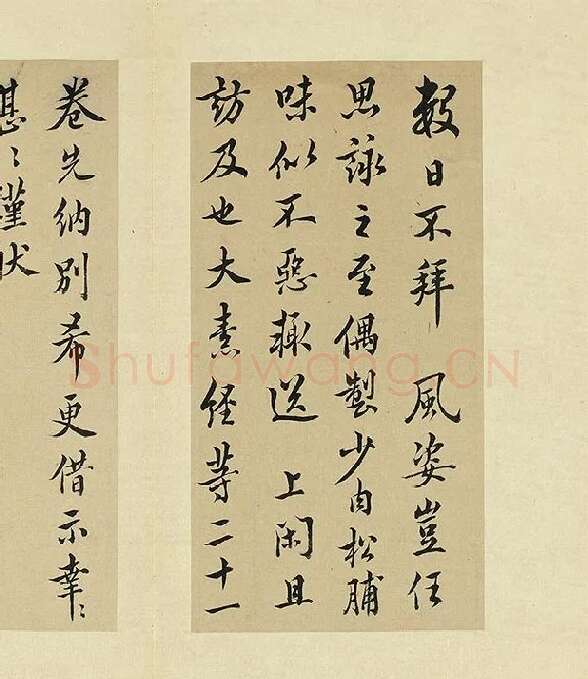 數日不拜 風姿豈任
思詠之至偶製少肉松脯
味似不惡輒送 上閑且
訪及也大素經等二十一
卷先納別希更借示幸〻
甚〻謹状
Shufawang.CN